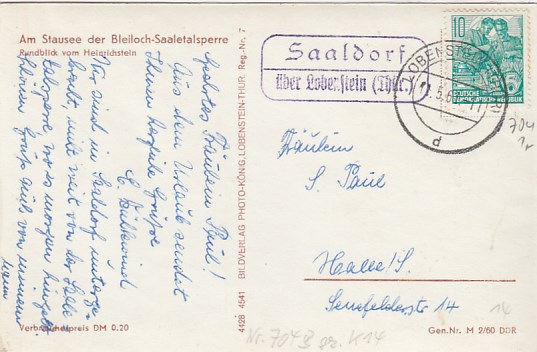 Am Stausee der Bleiloch-Saaletalsperre
Rundblick vom Heinrichstein
Geehrtes Fräulein Paul!
Aus dem Urlaub sendet
Ihnen herzliche Grüße
E.
Wir sind in Saaldorf unterge-
bracht, nicht weit von der Saale-
talsperre wo es morgen hingeht.
Schönen Gruß auch von meinem
Mann
Verbraucherpreis DM 0.20
4428 4541 BILDVERLAG PHOTO-KÖNIG, LOBENSTEIN-THÜR. Reg.-Nr. 7
Saaldorf
über Lobenstein (Thür.)
LOBENSTEIN (THÜR)
d
10
DEUTSCHE
DEMOKRATISCHE REPUBLIK
704
Fräulein
S. Paul
Halle/S.
Senefelderstr 14
14
Nr. 704 gz. K14
Gen.Nr. M 2/60 DDR